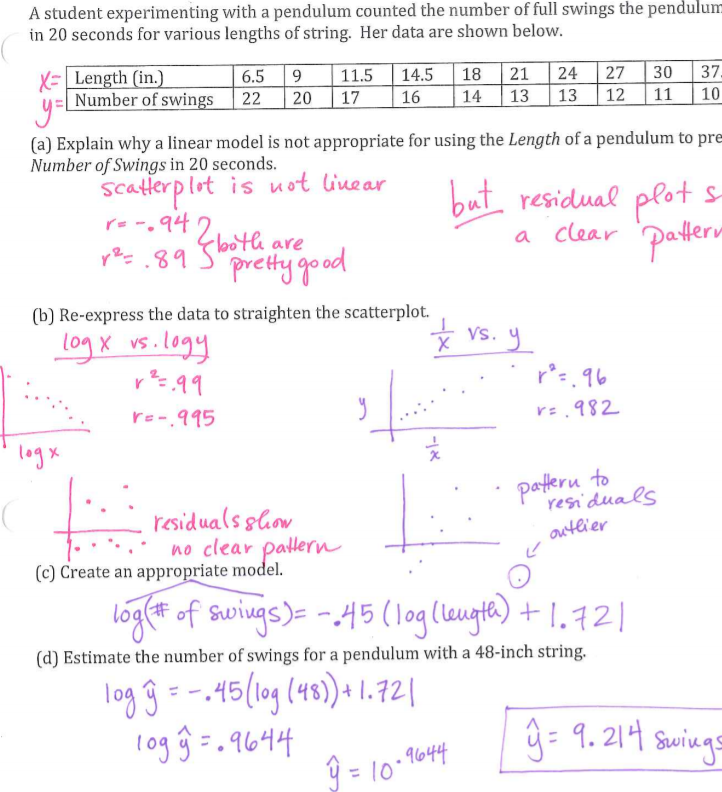 A student experimenting with a pendulum counted the number of full swings the pendulum
in 20 seconds for various lengths of string. Her data are shown below.
x= Length (in.) 6.5 9 11.5 14.5 18 21 24 27 30 37.
y= Number of swings 22 20 17 16 14 13 13 12 11 10
(a) Explain why a linear model is not appropriate for using the Length of a pendulum to pre
Number of Swings in 20 seconds.
scatterplot is not linear
r= -.94
r²= .89
both are
pretty good
but residual plot s
a clear pattern
(b) Re-express the data to straighten the scatterplot.
log x vs. log y
r²=.99
r=-.995
log x
1/x vs. y
r²=.96
r=.982
y
1/x
residuals show
no clear pattern
pattern to
residuals
outlier
(c) Create an appropriate model.
log(# of swings)= -.45 (log(length) + 1.721
(d) Estimate the number of swings for a pendulum with a 48-inch string.
log ŷ = -.45(log (48)) + 1.721
log ŷ = .9644
ŷ = 10^.9644
ŷ = 9.214 swings